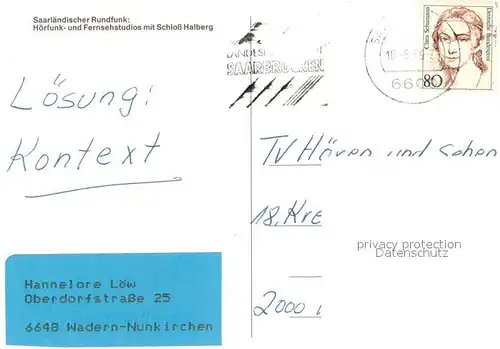 Saarländischer Rundfunk:
Hörfunk- und Fernsehstudios mit Schloß Halberg
SAARBRÜCKEN
Clara Schumann
Deutsche Bundespost
80
Lösung:
Kontext
TV Hören und sehen
18, Kre
privacy protection
Datenschutz
2000
Hannelore Löw
Oberdorfstraße 25
6648 Wadern-Nunkirchen